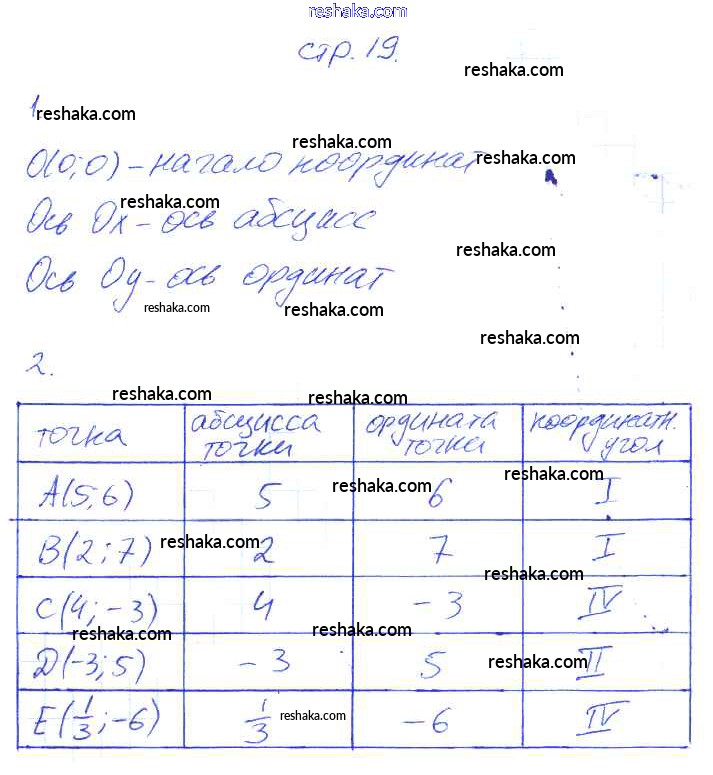 reshaka.com
стр. 19.
reshaka.com
1 reshaka.com
reshaka.com
O(0;0) - начало координат
reshaka.com
Ось Ox - ось абсцисс
reshaka.com
Ось Oy - ось ординат
reshaka.com
reshaka.com
reshaka.com
2.
reshaka.com
reshaka.com
точка абсцисса точки ордината точки координатн. угол
reshaka.com
reshaka.com
A(5;6) 5 6 I
reshaka.com
B(2;7) 2 7 I
reshaka.com
C(4;-3) 4 -3 IV
reshaka.com
reshaka.com
D(-3;5) -3 5 II
reshaka.com
E(1/3;-6) 1/3 -6 IV
reshaka.com